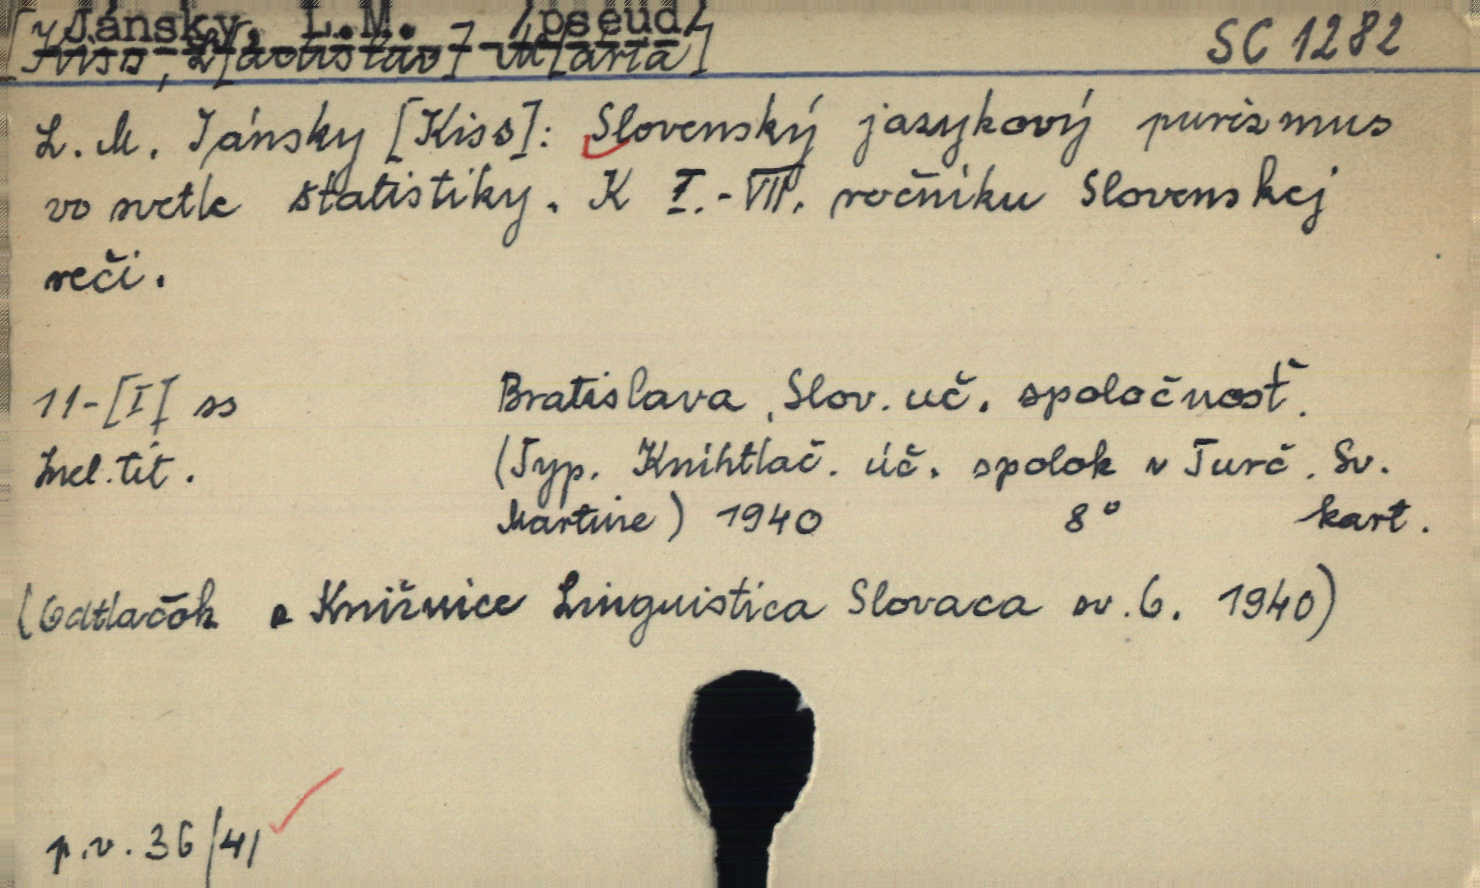 Jánsky, L.M. /pseud/
[Kiss, L[adislav] M[aria]
SC 1282
L. M. Jánsky [Kiss]: Slovenský jazykový purizmus
vo svetle štatistiky. K I.-VII. ročníku Slovenskej
reči.
11-[I] ss
Bratislava, Slov. uč. spoločnosť.
Incl. tit.
(Typ. Knihtlač. úč. spolok v Turč. Sv.
Martine) 1940 8° kart.
(Odtlačok z Knižnice Linguistica Slovaca sv. 6. 1940)
p.v. 36/41